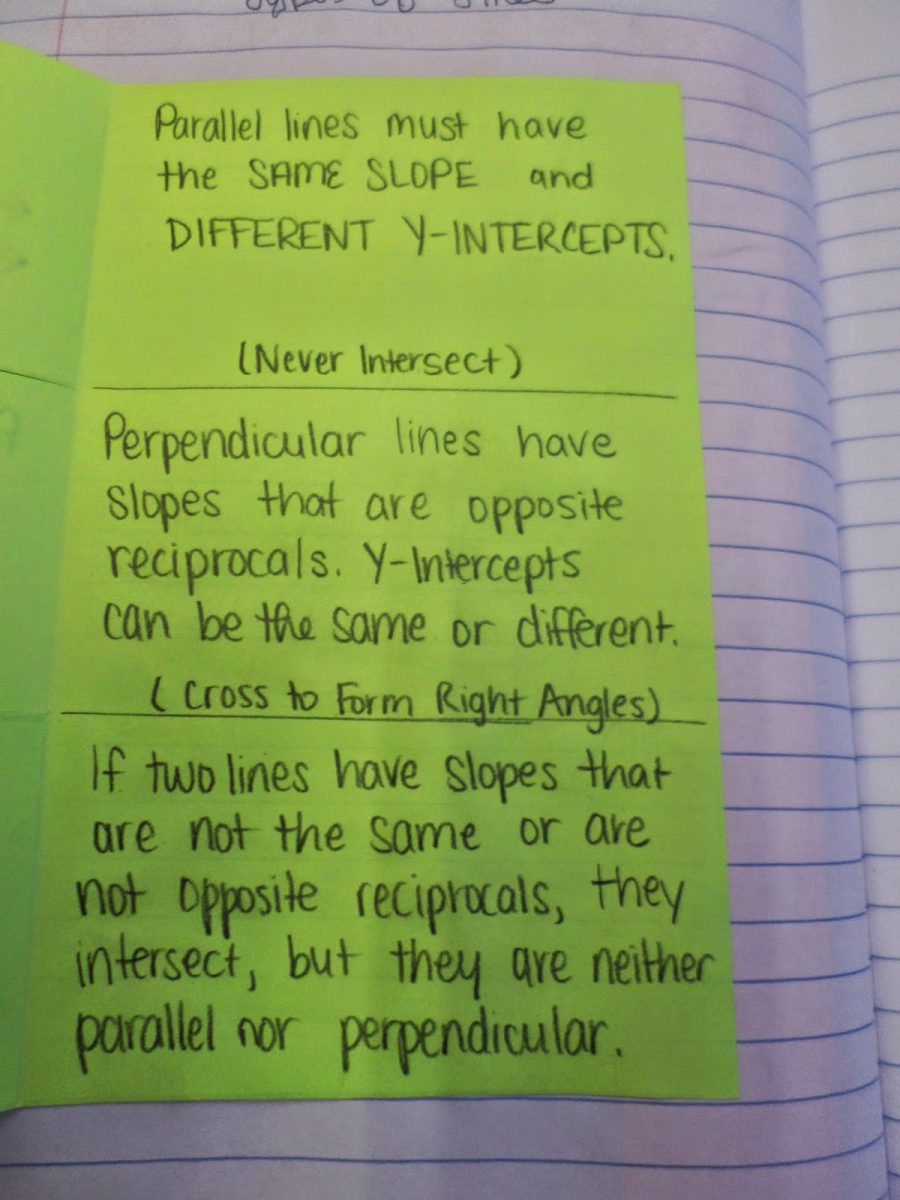 Parallel lines must have
the SAME SLOPE and
DIFFERENT Y-INTERCEPTS.
(Never Intersect)
Perpendicular lines have
slopes that are opposite
reciprocals. Y-Intercepts
can be the same or different.
(Cross to Form Right Angles)
If two lines have slopes that
are not the same or are
not opposite reciprocals, they
intersect, but they are neither
parallel nor perpendicular.